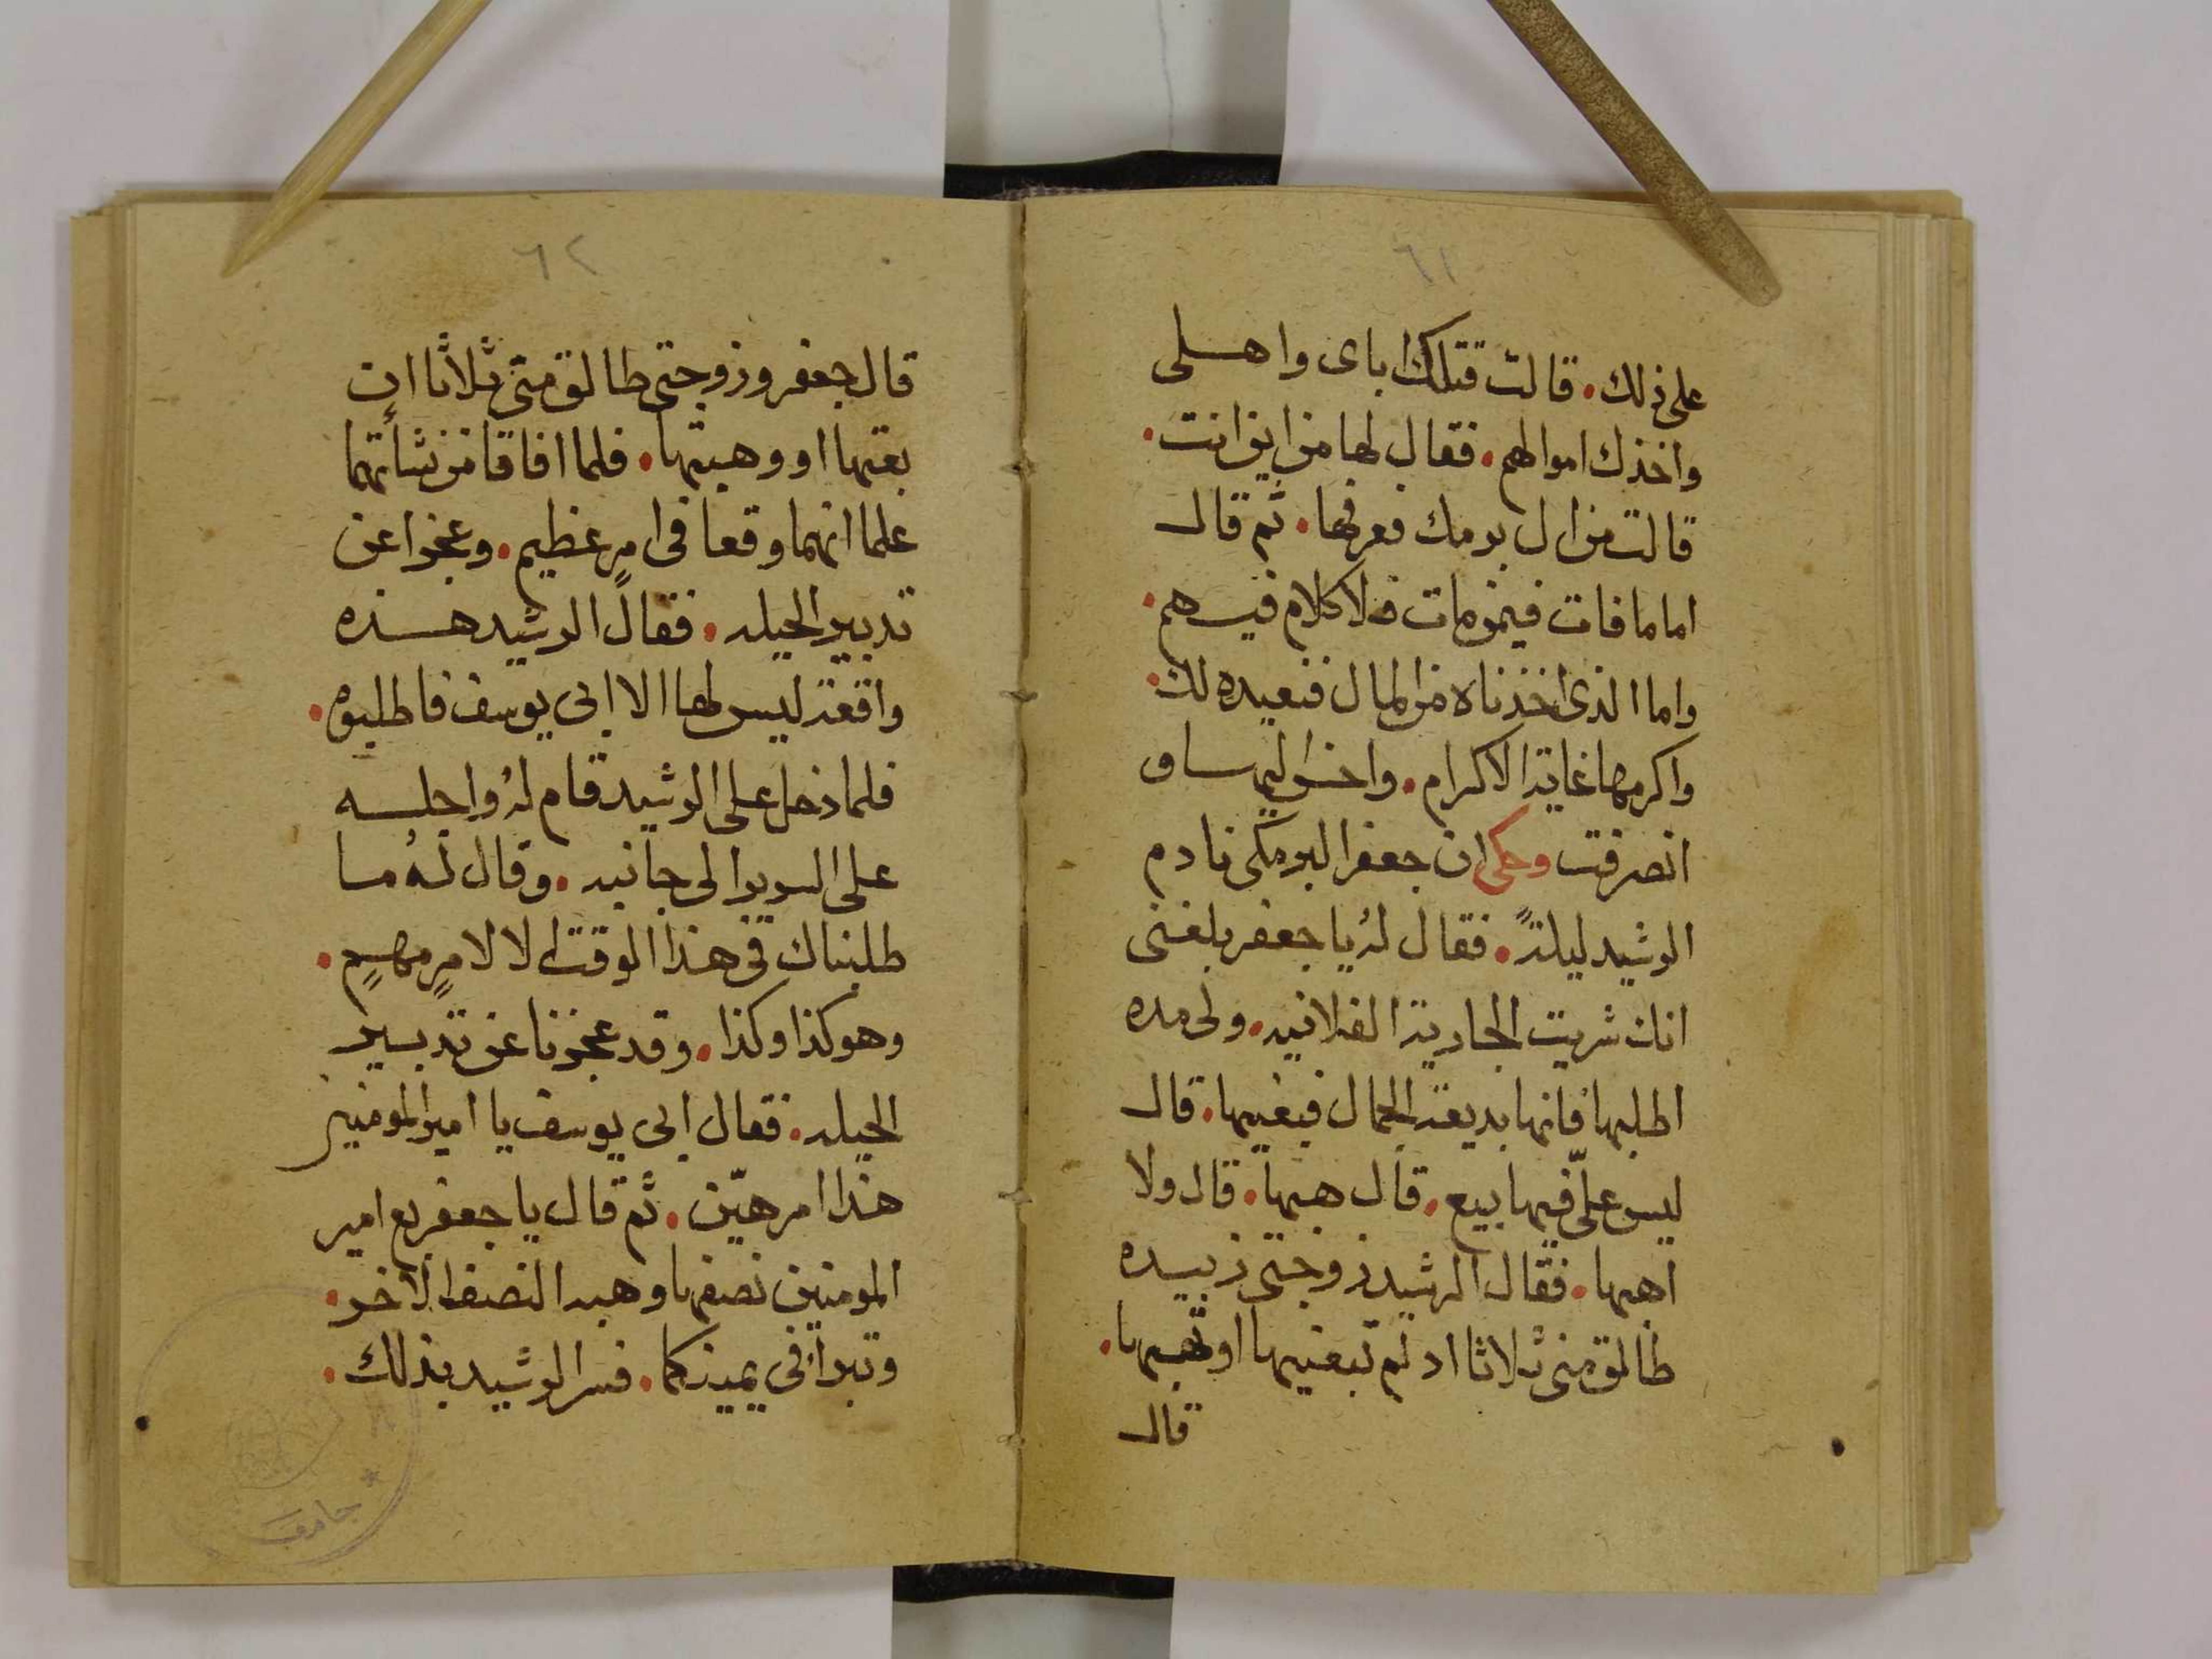 ٦١
على ذلك. قالت قتلك اباى واهلى
واخذك اموالهم. فقال لها من اين انت.
قالت من ال برمك فعرفها. ثم قال
اما ما فات فيمن مات فلا كلام فيهم.
واما الذى اخذناه من المال فنعيده لك.
واكرمها غاية الاكرام. واحسن اليها و
انصرفت وحكى ان جعفر البرمكى نادم
الرشيد ليلةً. فقال لهُ يا جعفر بلغنى
انك شريت الجارية الفلانيه. ولى مده
اطلبها فانها بديعة الجمال فبعنيها. قال
ليس علىّ فيها بيع. قال هبها. قال ولا
اهبها. فقال الرشيد زوجتى زبيده
طالق منى ثلاثا ان لم تبعنيها او تهبها.
قال
٦٢
قال جعفر وزوجتى طالق منى ثلاثا ان
بعتها او وهبتها. فلما افاقا من نشأتهما
علما انهما وقعا فى امرٍ عظيم. وعجزا عن
تدبير الحيله. فقال الرشيد هذه
واقعة ليس لها الا ابى يوسف فاطلبوه.
فلما دخل على الرشيد قام لهُ واجلسه
على السرير الى جانبه. وقال لهُ ما
طلبناك فى هذا الوقت الا لامرٍ مهمٍ.
وهو كذا وكذا. وقد عجزنا عن تدبير
الحيله. فقال ابى يوسف يا امير المومنين
هذا امر هيّن. ثم قال يا جعفر بع امير
المومنين نصفها وهبه النصف الاخر.
وتبرا فى يمينكما. فسر الرشيد بذلك.